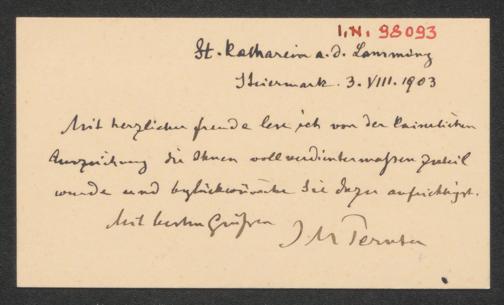 I.N. 98093
St. Katharein a. d. Lamming
Steiermark. 3. VIII. 1903
Mit herzlicher Freude lese ich von der kaiserlichen
Auszeichnung die Ihnen wohlverdientermassen zuteil
wurde und beglückwünsche Sie dazu aufrichtigst.
Mit besten Grüßen
J M